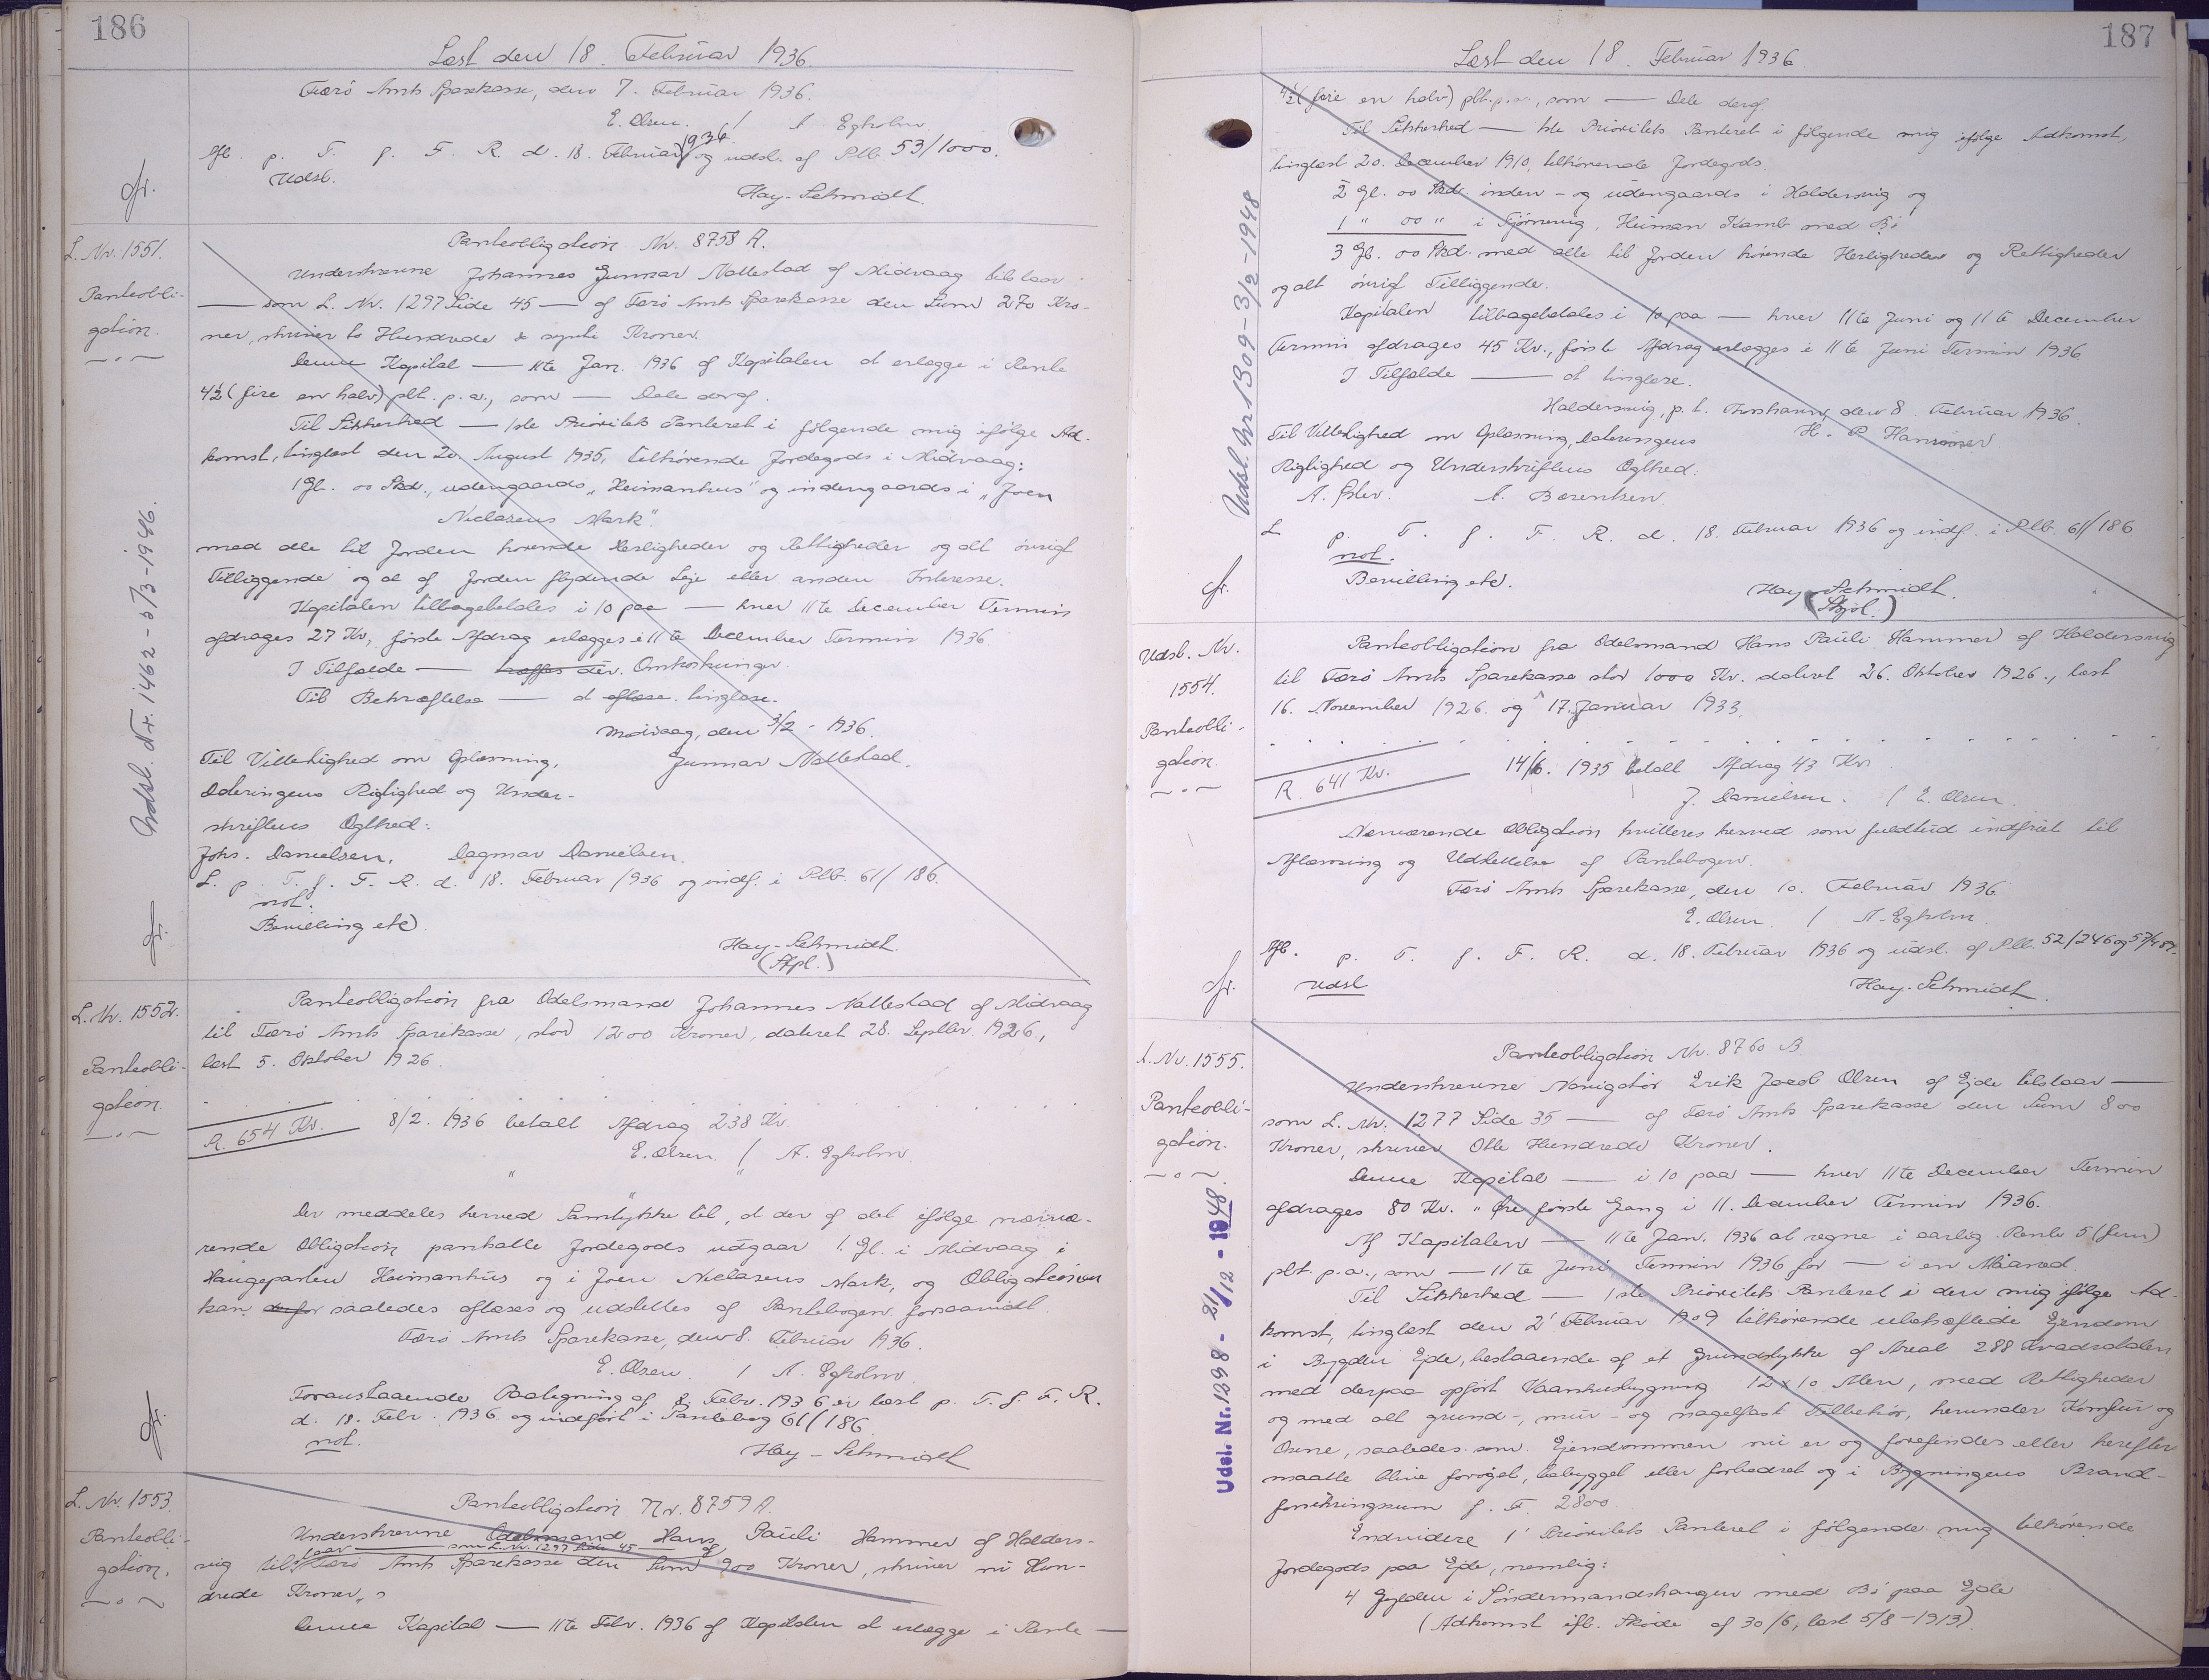 186
Læst den 18. Februar 1936.
Færö Amts Sparekasse, den 7. Februar 1936.
E. Olsen. / A. Egholm.
Afl. p. T. f. F. R. d. 18. Februar 1936 og udsl. af Ptb. 53/1000.
Udsl.
Hay-Schmidt.
L. Nr. 1551.
Panteobli-
gation.
Udsl. Nr. 1462 - 5/3-1946.
Panteobligation Nr. 8758 A.
Underskrevne Johannes Gunnar Nattestad af Midvaag tilstaar
— som L. Nr. 1297 Side 45 — af Færö Amts Sparekasse den Sum 270 Kro-
ner, skriver to Hundrede & syvti Kroner.
Denne Kapital — 11te Jan. 1936 af Kapitalen at erlægge i Rente
4½ (fire en halv) pCt. p.a., som — Dele deraf.
Til Sikkerhed — 1ste Prioritets Panteret i følgende mig ifølge Ad-
komst, tinglæst den 20. August 1935, tilhörende Jordegods i Midvaag:
1 Gl. 00 Skd., udengaards "Heimanhus" og indengaards i "Joen
Niclasens Mark".
med alle til Jorden hørende Herligheder og Rettigheder og alt övrigt
Tilliggende og al af Jorden flydende Leje eller anden Interesse.
Kapitalen tilbagebetales i 10 paa — hver 11te December Termin
afdrages 27 Kr., første Afdrag erlægges i 11te December Termin 1936
I Tilfælde — træffes der. Omkostninger.
Til Bekræftelse — at aflæse. tinglæse.
Midvaag, den 3/2 - 1936.
Til Vitterlighed om Oplæsning, Gunnar Nattestad.
Dateringens Rigtighed og Under-
skriftens Ægthed:
Johs. Danielsen. Dagmar Danielsen.
L. p. T. f. F. R. d. 18. Februar 1936 og indf. i Ptb. 61/186.
not.
Bevilling etc.
Hay-Schmidt.
(Stpl.)
L. Nr. 1552.
Panteobli-
gation.
Panteobligation fra Odelsmand Johannes Nattestad af Midvaag
til Færö Amts Sparekasse, stor 1200 Kroner, dateret 28. Septbr. 1926,
læst 5. Oktober 1926.
R. 654 Kr. 8/2. 1936 betalt Afdrag 238 Kr.
E. Olsen. / A. Egholm.
Der meddeles herved Samtykke til, at der af det ifølge nærvæ-
rende Obligation pantsatte Jordegods udgaar 1. Gl. i Midvaag i
Haugeparten Heimanhus og i Joen Niclasens Mark, og Obligationen
kan derfor saaledes aflæses og udslettes af Pantebogen forsaavidt.
Færö Amts Sparekasse, den 8. Februar 1936.
E. Olsen / A. Egholm.
Foranstaaende Paategning af 8. Febr. 1936 er læst p. T. f. F. R.
d. 18. Febr. 1936 og indført i Pantebog 61/186
not.
Hay-Schmidt
L. Nr. 1553.
Panteobli-
gation.
Panteobligation Nr. 8759 A.
Underskrevne Odelsmand Hans Pauli Hammer af Halders-
vig tilstaar — som L. Nr. 1297 Side 45 — af Færö Amts Sparekasse den Sum 900 Kroner, skriver ni Hun-
drede Kroner.
Denne Kapital — 11te Febr. 1936 af Kapitalen at erlægge i Rente —
187
Læst den 18. Februar 1936
4½ (fire en halv) pCt. p.a., som — Dele deraf.
Til Sikkerhed — 1ste Prioritets Panteret i følgende mig ifølge Adkomst,
tinglæst 20. December 1910, tilhörende Jordegods.
2 Gl. 00 Skd. inden- og udengaards i Haldersvig og
1 " 00 " i Tjörnuvig, Heiman Kamb med Bö
3 Gl. 00 Skd. med alle til Jorden hørende Herligheder og Rettigheder
og alt övrigt Tilliggende.
Kapitalen tilbagebetales i 10 paa — hver 11te Juni og 11te December
Termin afdrages 45 Kr., første Afdrag erlægges i 11te Juni Termin 1936
I Tilfælde — at tinglæse.
Haldersvig, p. t. Thorshavn, den 8. Februar 1936.
Til Vitterlighed om Oplæsning, Dateringens H. P. Hammer
Rigtighed og Underskriftens Ægthed:
A. Berentsen.
L. p. T. f. F. R. d. 18. Februar 1936 og indf. i Ptb. 61/186
not.
Bevilling etc.
Hay-Schmidt.
(Stpl.)
Udsl. Nr 1309 - 3/2-1948
Udsl. Nr.
1554.
Panteobli-
gation.
Panteobligation fra Odelsmand Hans Pauli Hammer af Haldersvig
til Færö Amts Sparekasse stor 1000 Kr. dateret 26. Oktober 1926., læst
16. November 1926. og 17. Januar 1933.
R. 641 Kr. 14/6. 1935 betalt Afdrag 43 Kr.
J. Danielsen. / E. Olsen.
Nærværende Obligation kvitteres herved som fuldtud indfriet til
Aflæsning og Udslettelse af Pantebogen.
Færö Amts Sparekasse, den 10. Februar 1936
E. Olsen. / A. Egholm.
Afl. p. T. f. F. R. d. 18. Februar 1936 og udsl. af Ptb. 52/246 og
Udsl
Hay-Schmidt.
L. Nr. 1555.
Panteobli-
gation.
Udsl. Nr. 1298 - 2/12 - 1948.
Panteobligation Nr. 8760 B
Underskrevne Navigatör Erik Jacob Olsen af Ejde tilstaar —
som L. Nr. 1277 Side 35 — af Færö Amts Sparekasse den Sum 800
Kroner, skriver Otte Hundrede Kroner.
Denne Kapital — i 10 paa — hver 11te December Termin
afdrages 80 Kr. " Øre første Gang i 11. December Termin 1936.
Af Kapitalen — 11te Jan. 1936 at regne i aarlig Rente 5 (fem)
pCt. p.a., som — 11te Juni Termin 1936 for — i en Maaned.
Til Sikkerhed — 1ste Prioritets Panteret i den mig ifølge Ad-
komst, tinglæst den 2' Februar 1909 tilhörende ubehæftede Ejendom
i Bygden Ejde, bestaaende af et Grundstykke af Areal 288 Kvadratalen
med derpaa opført Vaaningsbygning 12 x 10 Alen, med Rettigheder
og med alt grund-, mur- og nagelfast Tilbehör, herunder Komfur og
Ovne, saaledes som Ejendommen nu er og forefindes eller herefter
maatte blive forøget, bebygget eller forbedret og i Bygningens Brand-
forsikringssum f. T. 2800.
Endvidere 1' Prioritets Panteret i følgende mig tilhørende
Jordegods paa Ejde, nemlig:
4 Gylden i Söndermandshaugen med Bö paa Ejde
(Adkomst ifl. Sköde af 30/6, læst 5/8-1913).